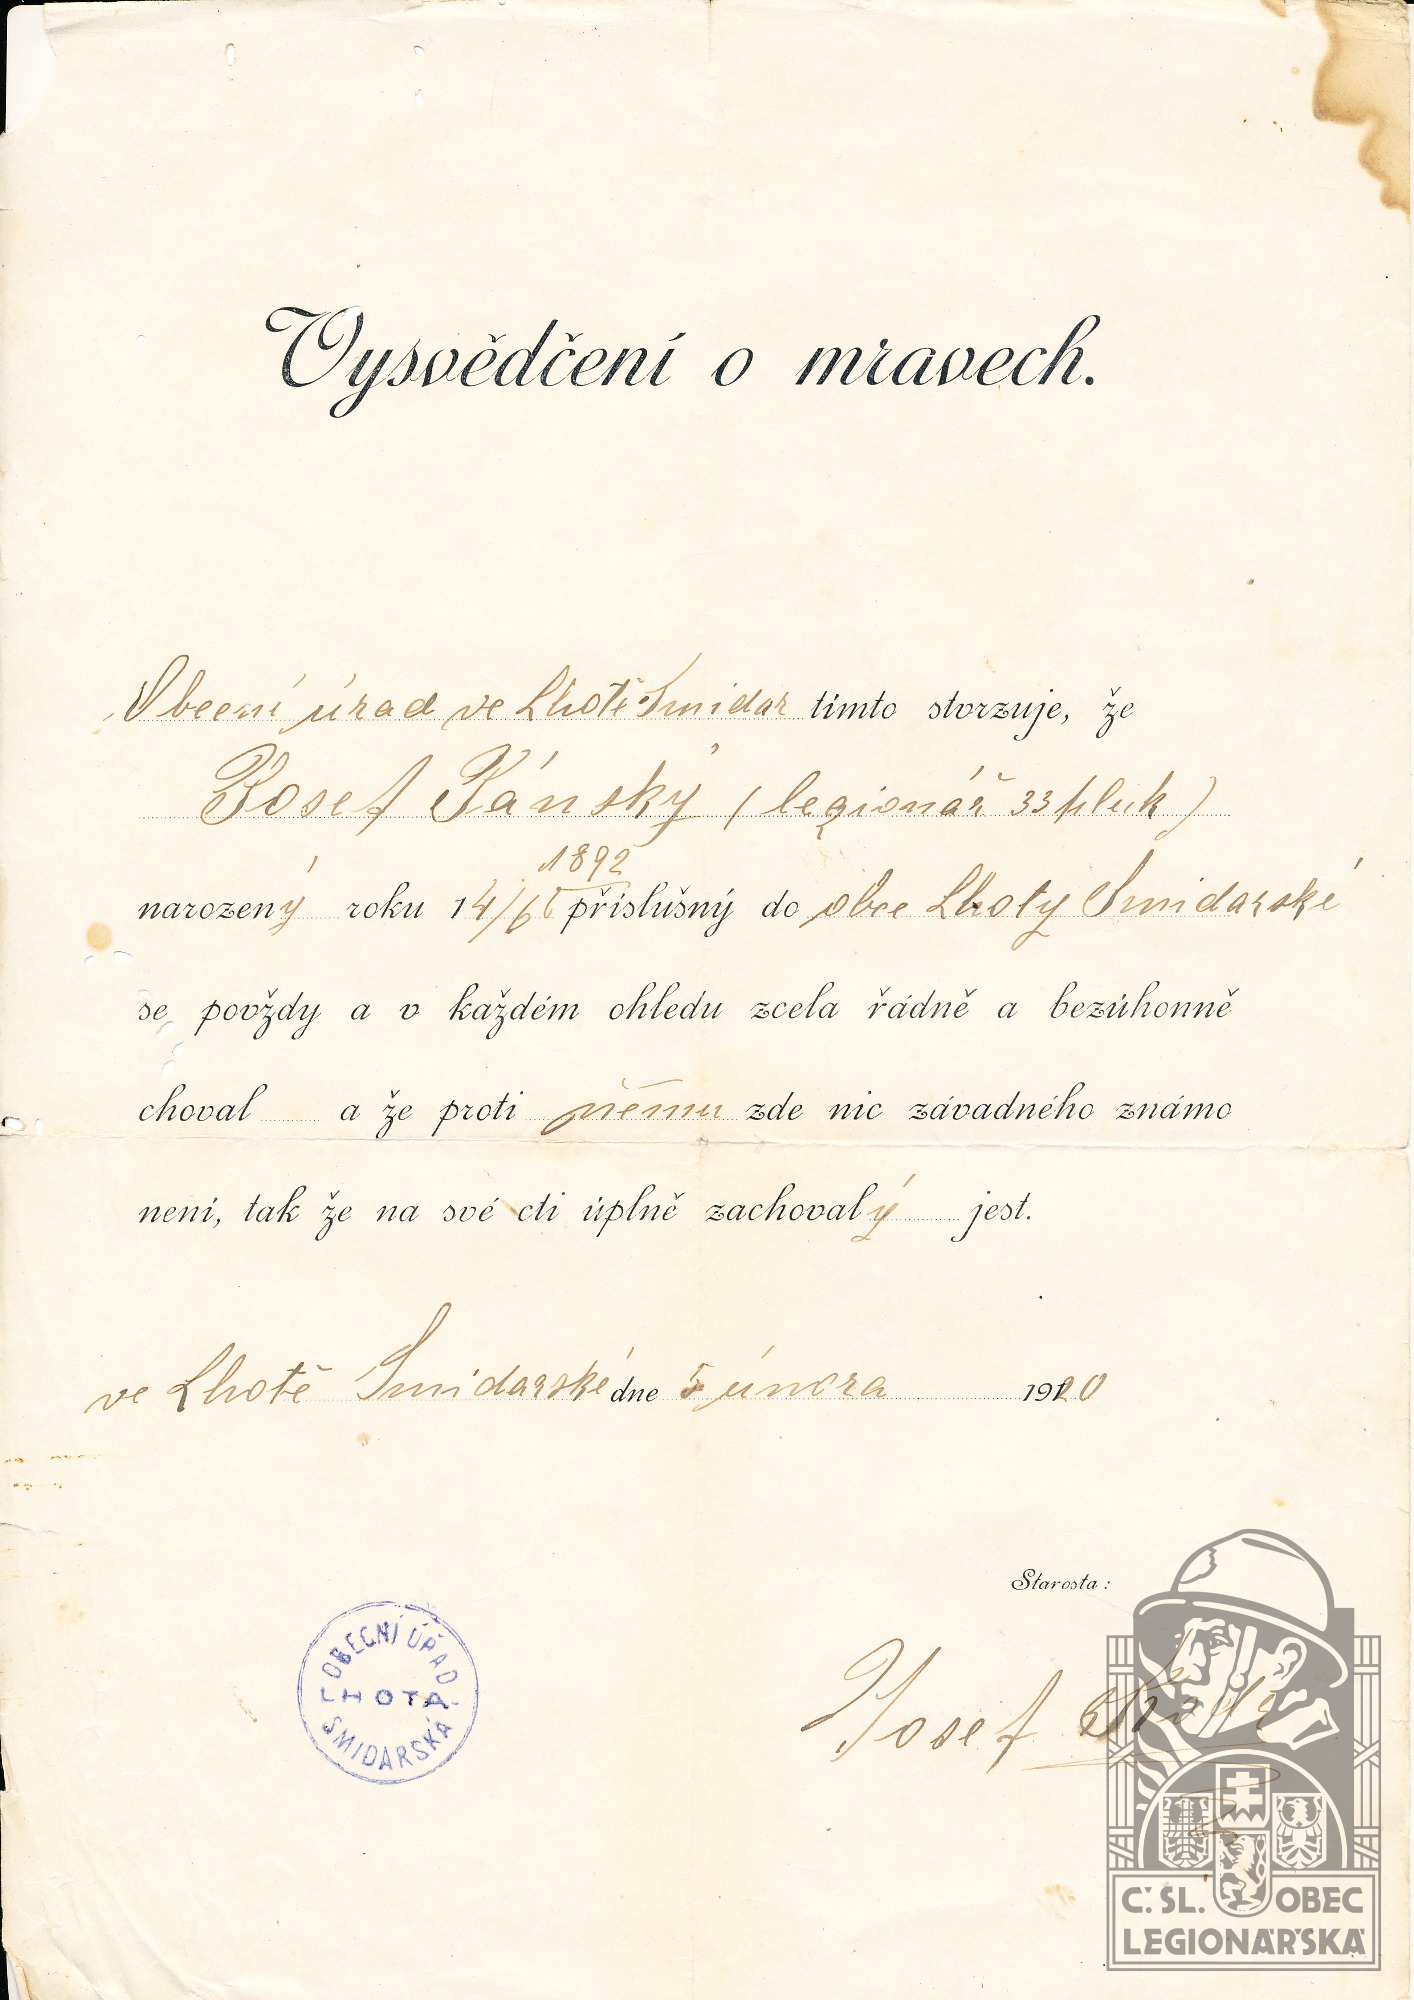 Vysvědčení o mravech.
Obecní úřad ve Lhotě Smidar tímto stvrzuje, že
Josef Jánský (legionář 33 pluk)
1892
narozený roku 14/6 příslušný do obce Lhoty Smidarské
se povždy a v každém ohledu zcela řádně a bezúhonně
choval a že proti němu zde nic závadného známo
není, tak že na své cti úplně zachovalý jest.
ve Lhotě Smidarské dne 5 února 1920
Starosta:
Josef
OBECNÍ ÚŘAD
LHOTA
SMIDARSKÁ
Č. SL. OBEC
LEGIONÁŘSKÁ